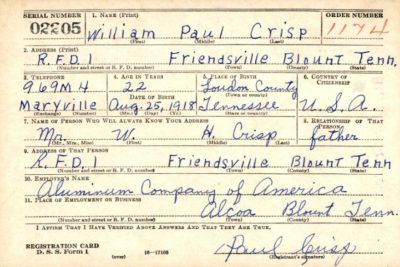 SERIAL NUMBER 1. NAME (Print) ORDER NUMBER
02205 William Paul Crisp 1174
(First) (Middle) (Last)
2. ADDRESS (Print)
R.F.D.1 Friendsville Blount Tenn.
(Number and street or R. F. D. number) (Town) (County) (State)
3. TELEPHONE 4. AGE IN YEARS 5. PLACE OF BIRTH 6. COUNTRY OF CITIZENSHIP
969M4 22 Loudon County
DATE OF BIRTH (Town or county)
Maryville Aug. 25, 1918 Tennessee U.S.A.
(Exchange) (Number) (Mo.) (Day) (Yr.) (State or country)
7. NAME OF PERSON WHO WILL ALWAYS KNOW YOUR ADDRESS 8. RELATIONSHIP OF THAT PERSON
Mr. W. H. Crisp father
(Mr., Mrs., Miss) (First) (Middle) (Last)
9. ADDRESS OF THAT PERSON
R.F.D.1 Friendsville Blount Tenn
(Number and street or R. F. D. number) (Town) (County) (State)
10. EMPLOYER'S NAME
Aluminum Company of America
11. PLACE OF EMPLOYMENT OR BUSINESS
Alcoa Blount Tenn.
(Number and street or R. F. D. number) (Town) (County) (State)
I AFFIRM THAT I HAVE VERIFIED ABOVE ANSWERS AND THAT THEY ARE TRUE.
REGISTRATION CARD
D. S. S. Form 1 (over) 16—17105 Paul Crisp
(Registrant's signature)